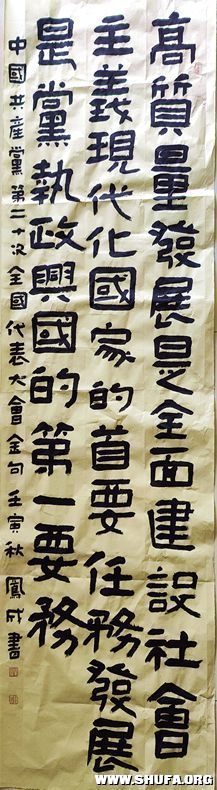 高質量發展是全面建設社會
主義現代化國家的首要任務發展
是黨執政興國的第一要務
中國共產黨第二十次全國代表大會金句壬寅秋鳳成書
WWW.SHUFA.ORG